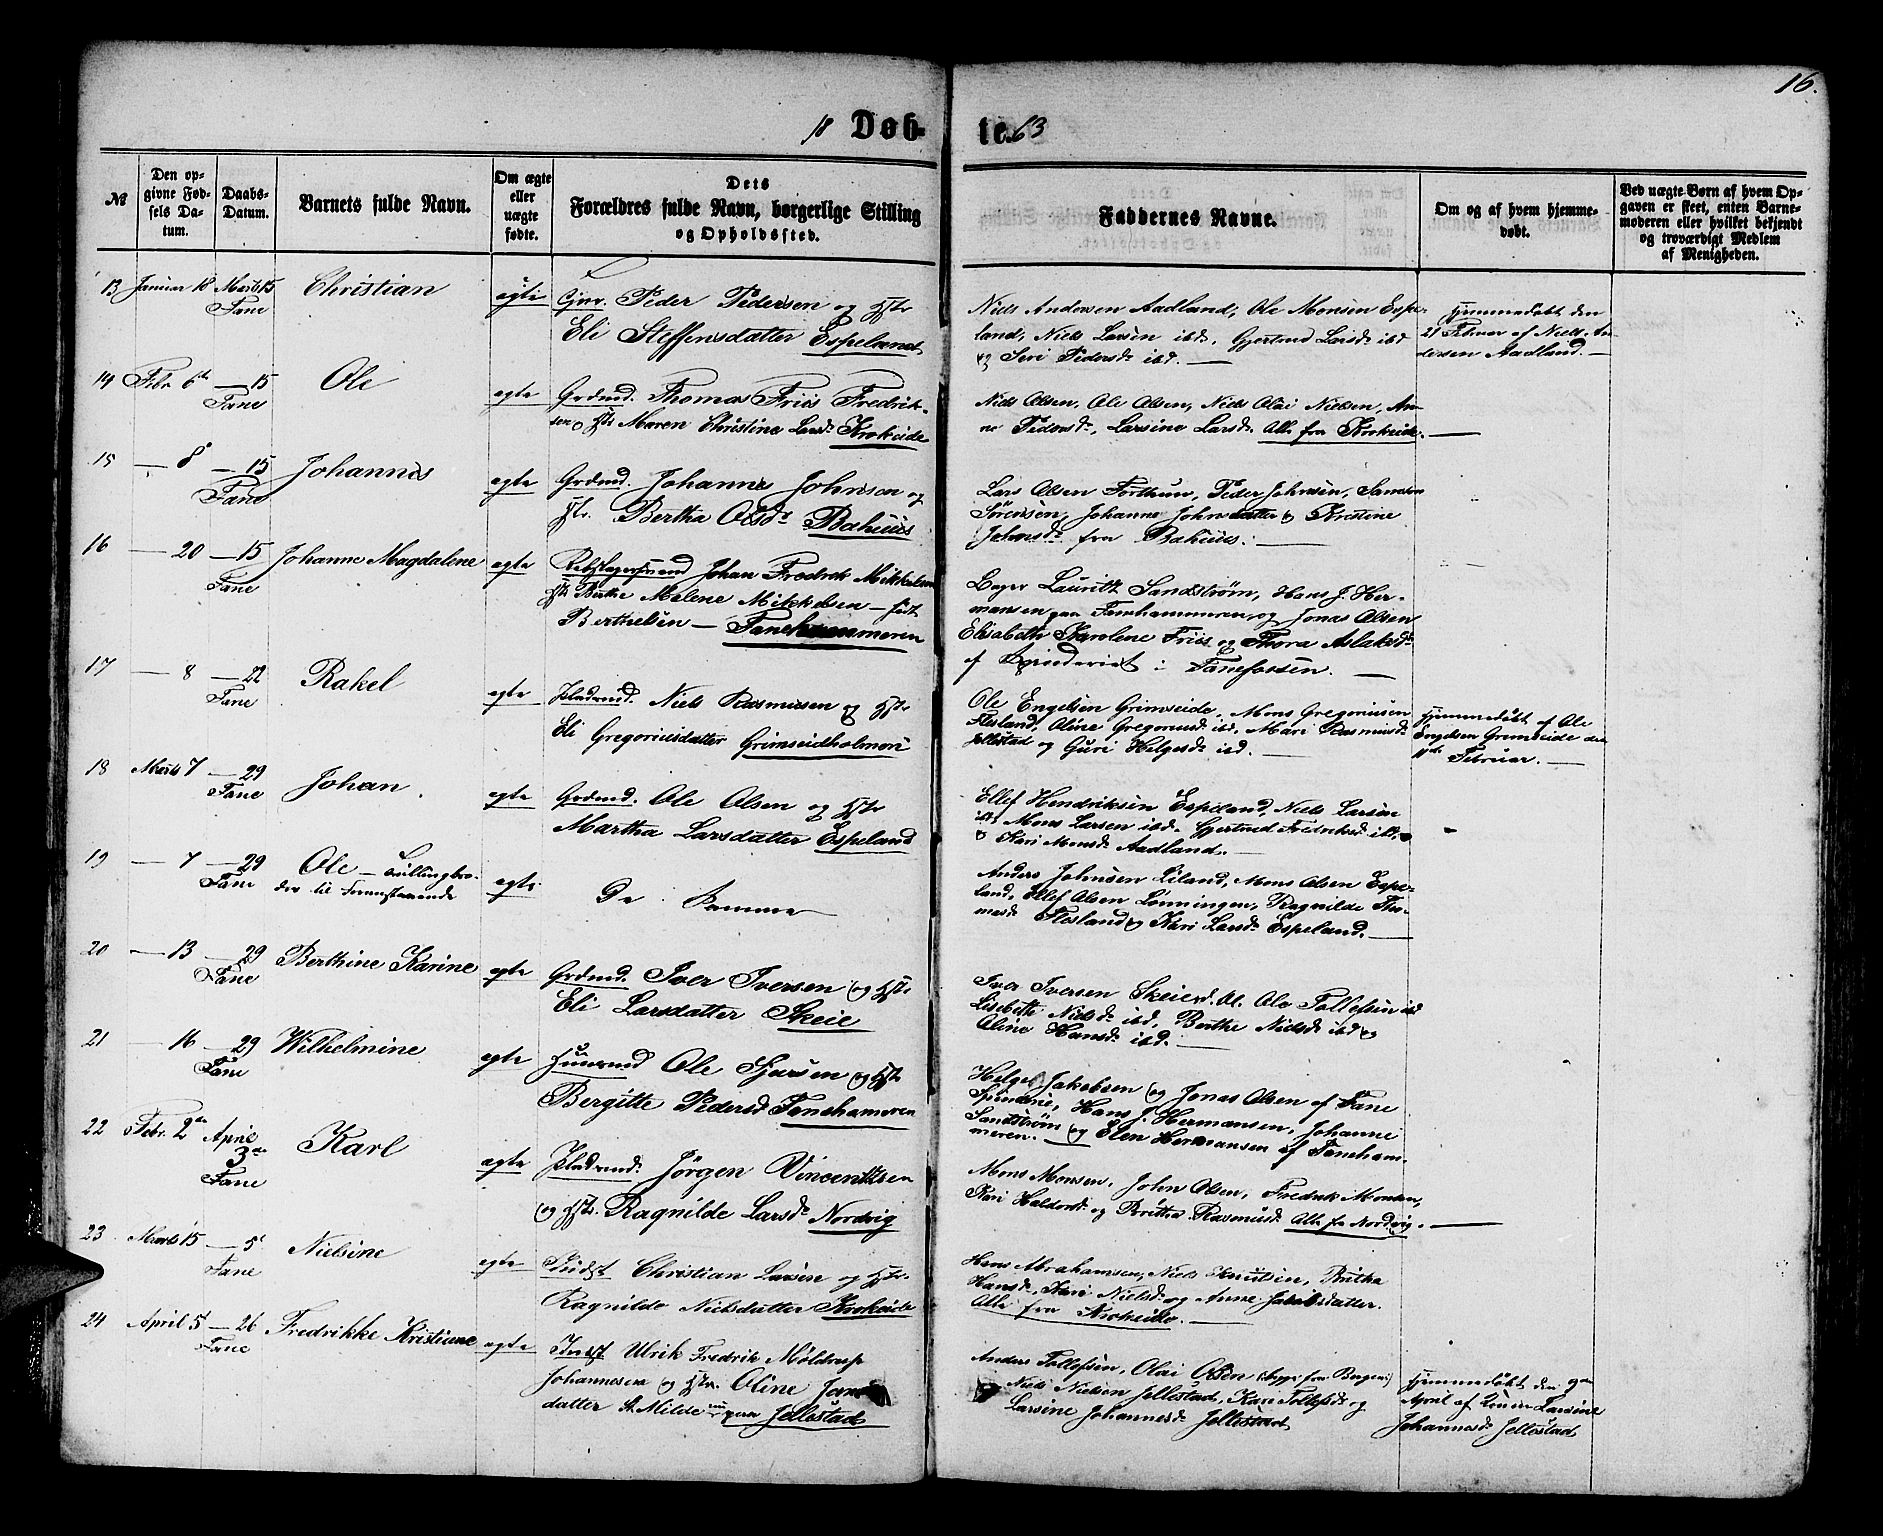 16.
18 Døb-
te. 63
№
Den op-
givne Fød-
sels Da-
tum.
Daabs-
Datum.
Barnets fulde Navn.
Om ægte
eller
uægte
fødte.
Dets
Forældres fulde Navn, borgerlige Stilling
og Opholdssted.
Faddernes Navne.
Om og af hvem hjemme-
døbt.
Ved uægte Børn af hvem Op-
gaven er skeet, enten Barne-
moderen eller hvilket bekjendt
og troværdigt Medlem
af Menigheden.
13 Januar 18 Marts 15 Christian
Fane
egte
Peder Pedersen og Hstr
Eli Steffensdatter Espeland
Niels Andersen Aadland, Ole Monsen Espe-
land, Niels Larsen ibd, Gjertrud Larsd ibd
og Seri Pedersd ibd. —
Hjemmedøbt den
21 Februar af Niels An-
dersen Aadland. —
14 Febr. 6te — 15 Ole
Fane
egte
Grdmd. Thomas Friis Fredrik-
sen og Hst Maren Christine Larsd. Krokeide
Niels Olsen, Ole Olsen, Niels Olai Nielsen, An-
ne Pedersd., Larsine Larsd. Alle fra Krokeide. —
15 — 8 — 15 Johannes
Fane
egte
Grdmd. Johannes Johnsen og
Hstr. Bertha Olsdr Bahuus
Lars Olsen Forthun, Peder Johnsen, Samson
Sørensen, Johanne Johnsdatter og Kristine
Johnsd. fra Bahuus. —
16 — 20 — 15 Johanne Magdalene
Fane
egte
Rebslagersvend Johan Fredrik Mikkelsen
Hstr Berthe Malene Mikkelsen — født
Berthelsen — Fanehammeren
Bager Lauritz Sandstrøm, Hans J. Her-
mansen paa Fanehammeren og Jonas Olsen
Elisabeth Karolene Friis og Thora Aslaksdr
af Spinderiet i Fanefossen. —
17 — 8 — 22 Rakel
Fane
egte
Pladsmd. Niels Rasmussen og Hstr
Eli Gregoriusdatter Grimseidholmen
Ole Engelsen Grimseide, Mons Gregoriusen
Flesland, Oline Gregoriusd ibd, Mari Rasmusdr
Jellestad og Guri Helgesdr ibd. —
Hjemmedøbt af Ole
Engelsen Grimseide den
Februar. —
18 Marts 7 — 29 Johan.
Fane
egte
Grdmd. Ole Olsen og Hstr
Martha Larsdatter Espeland
Ellef Hendriksen Espeland, Niels Larsen
ibd, Mons Larsen ibd. Gjertrud Fredriksd ibd,
og Kari Monsdr Aadland. —
19 — 7 — 29 Ole — Tvillingbro-
Fane der til Foranstaaende
egte
De Samme
Anders Johnsen Liland, Mons Olsen Espe-
land, Ellef Olsen Lønningen, Ragnilde Tho-
masdr Flesland og Kari Larsdr Espeland. —
20 — 13 — 29 Berthine Karine
Fane
egte
Grdmd. Iver Iversen og Hstr
Eli Larsdatter Skeie
Iver Iversen Skeie Ole Tollefsen ibd
Lisebette Nielsdr ibd, Berthe Nielsdr ibd og
Oline Hansdr ibd. —
21 — 16 — 29 Wilhelmine
Fane
egte
Huusmd Ole Sjursen og Hstr
Bergitte Pedersd Fanehameren
Helge Jakobsen og Jonas Olsen af Fane
Spinderie, Hans J. Hermansen, Johanne
Sandstrøm og Elen Hermansen af Faneham-
meren. —
22 Febr. 2den April Karl
3die
Fane
egte
Pladsmd. Jörgen Vincentsen
og Hstr. Ragnilde Larsdr Nordvig
Mons Monsen, John Olsen, Fredrik Monsen,
Kari Haldorsdr og Britha Rasmusdr Alle fra Nordvig. —
23 Marts 15 — 5t Nielsine
Fane
egte
Indst Christian Larsen og Hstr.
Ragnilde Nielsdatter Krokeide
Hans Abrahamsen, Niels Knutsen, Britha
Hansdr, Kari Nielsdr og Anne Jakobsdatter.
Alle fra Krokeide. —
24 April 5t — 26 Fredrikke Kristiane
Fane
egte
Indst Ulrik Fredrik Möldrup
Johannesen og Hstr. Oline Jans
datter St. Milde nu paa Jellestad
Anders Tollefsen, Olai Olsen (begge fra Bergen)
Niels Nielsen Jellestad, Kari Tollefsdr og
Larsine Johannesdr Jellestad
Hjemmedøbt den 9de
April af Larsine
Johannesdr Jellestad